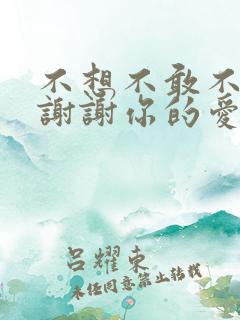 不想不敢不
謝謝你的愛
呂耀東
未經同意禁止轉載